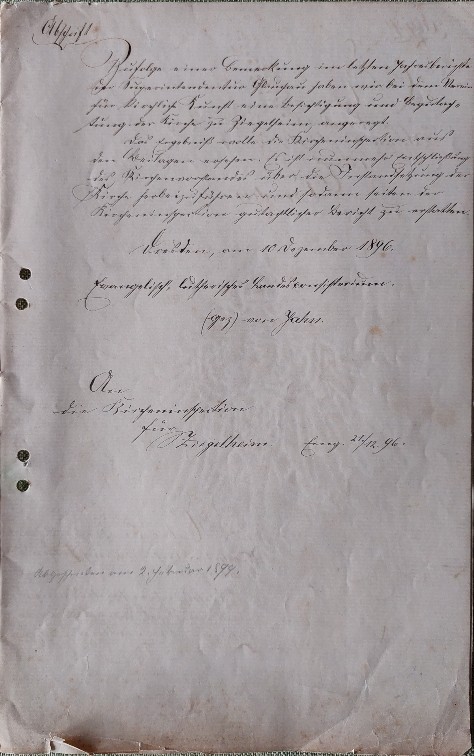 Abschrift
Zufolge einer Bemerkung im letzten Jahresberichte
der Superintendentur Glauchau haben wir bei dem Verein
für kirchliche Kunst eine Besichtigung und Begutach-
tung der Kirche zu Ziegelheim angeregt.
Das Ergebnis wolle die Kircheninspection aus
den Beilagen ersehen. Es ist nunmehr Entschließung
des Kirchenvorstandes über die Instandsetzung der
Kirche herbeizuführen und sodann seiten der
Kircheninspection gutachtlicher Bericht zu erstatten.
Dresden, am 10 Dezember 1896.
Evangelisch-lutherisches Landesconsistorium.
(gez) von Zahn.
An
die Kircheninspection
für
Ziegelheim
Eing. 21/12 96.
Abgeschrieben am 2. Februar 1897.